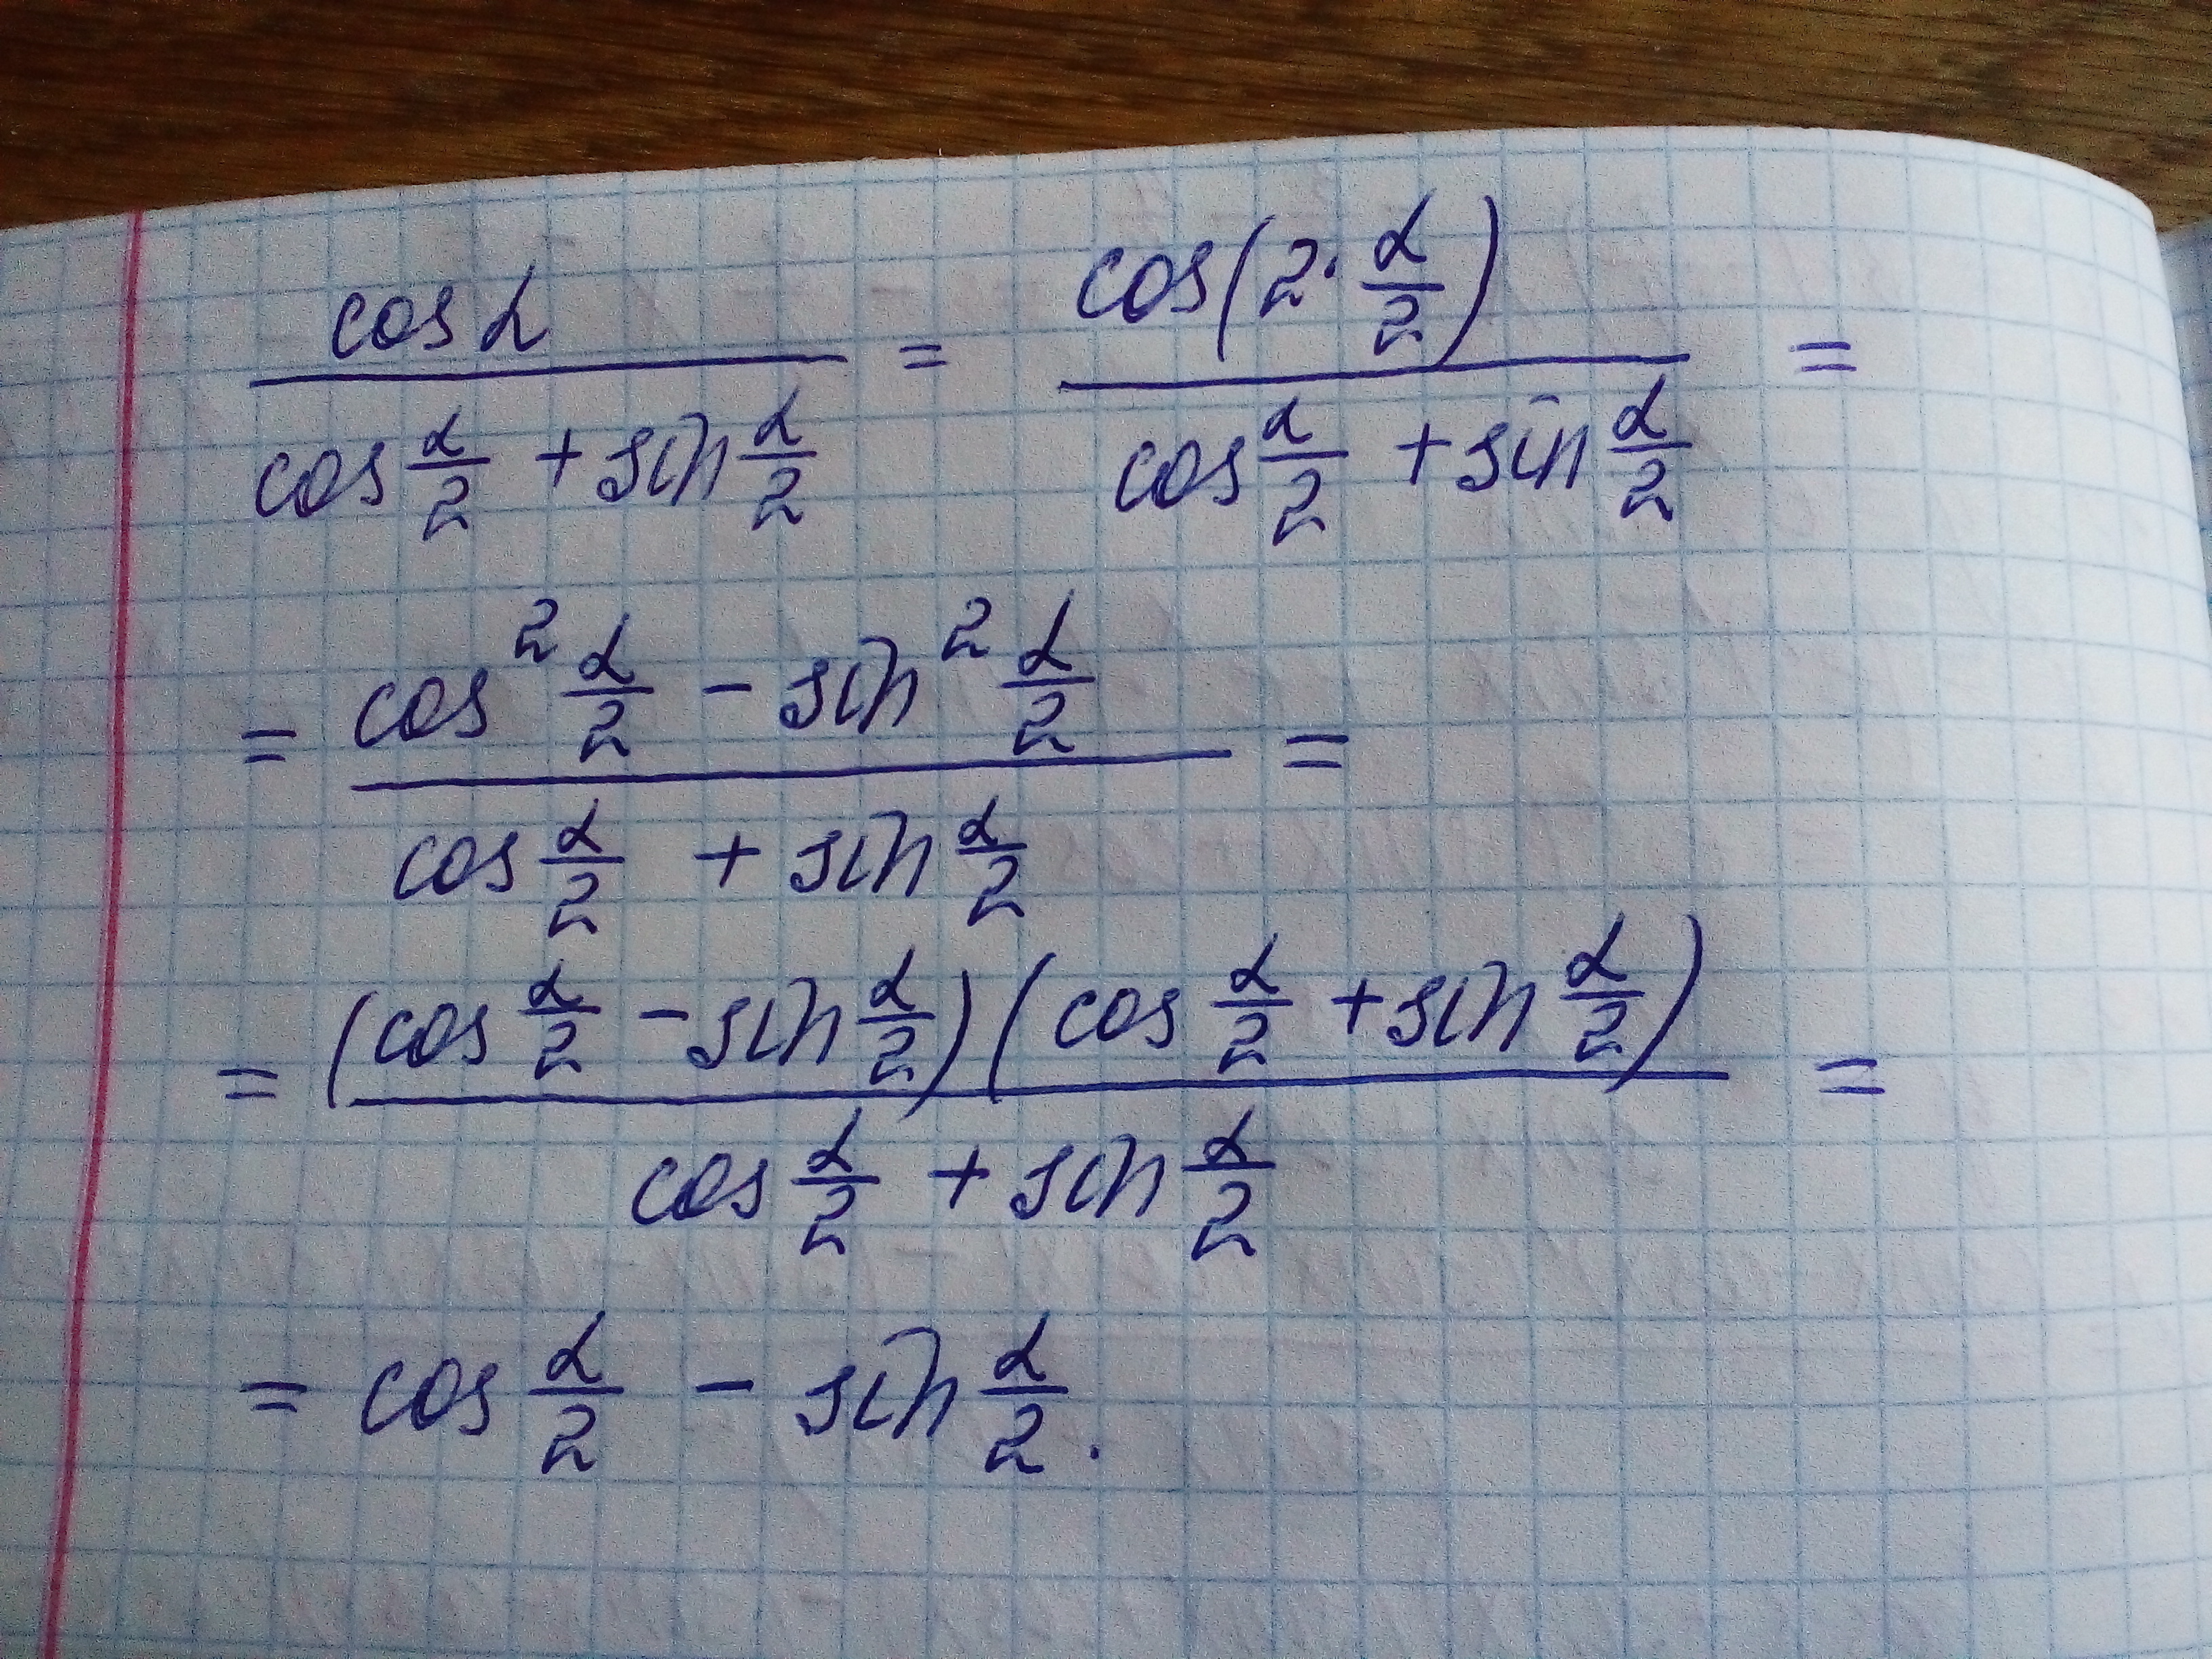 cos α / (cos α/2 + sin α/2) = cos(2·α/2) / (cos α/2 + sin α/2) =
= (cos² α/2 − sin² α/2) / (cos α/2 + sin α/2) =
= (cos α/2 − sin α/2)(cos α/2 + sin α/2) / (cos α/2 + sin α/2) =
= cos α/2 − sin α/2.